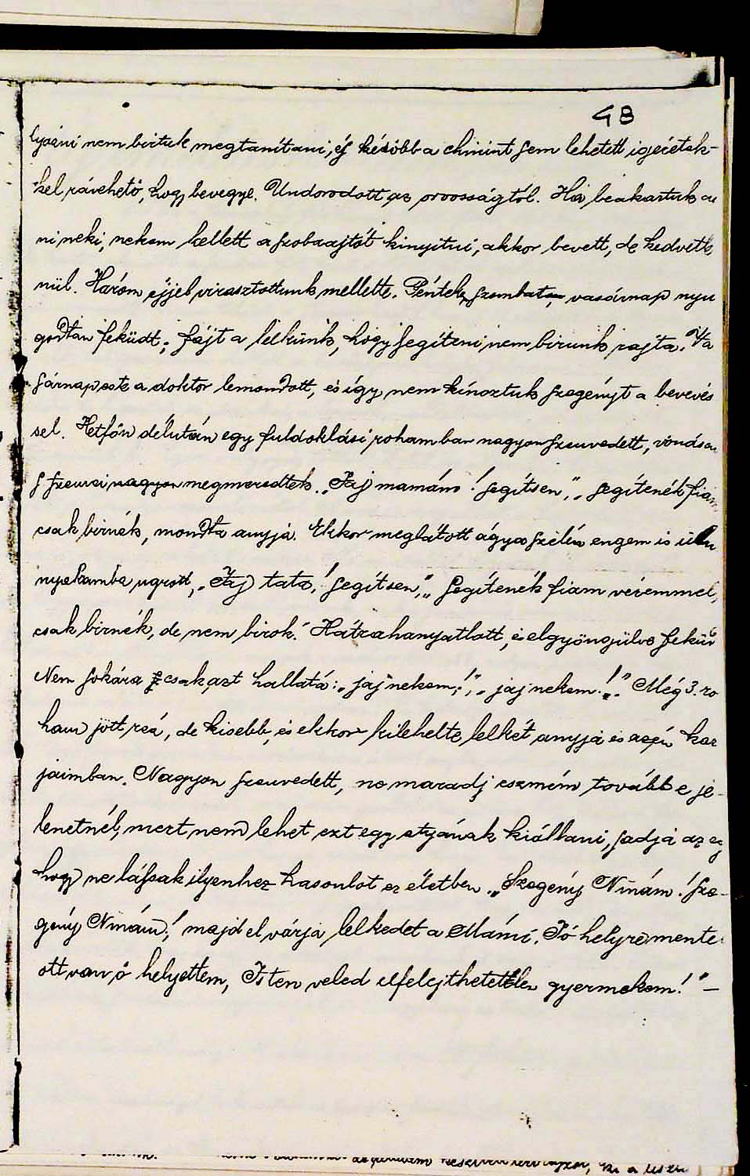 48
lyázni nem birtuk megtanitani, és később a chinint sem lehetett igéretek-
kel rávehető, hogy bevegye. Undorodott az orvosságtól. Ha beakartuk ad
ni neki, nekem kellett a szobaajtót kinyitni, akkor bevett, de kedvetle
nül. Három éjjel virasztottunk mellette. Péntek, szombat, vasárnap nyu
godtan feküdt; fájt a lelkünk, hogy segiteni nem birunk rajta. Va
sárnap este a doktor lemondott, és igy nem kinoztuk szegényt a bevevés
sel. Hetfőn délután egy fuldoklási rohamban nagyon szenvedett, vonása
s szemei nagyon megmeredtek. „Jaj mamám! segitsen," „segitenék fiam,
csak birnék, mondta anyja. Ekkor meglátott ágya szélén engem is
nyakamba ugrott, „Jaj tata! segitsen," „segitenék fiam véremmel,
csak birnék, de nem birok." Hátrahanyatlott, és elgyöngülve feküdt
Nem sokára csak azt hallatá: „jaj nekem!", „jaj nekem!." Még 3. ro
ham jött reá, de kisebb, és ekkor kilehelte lelkét anyja és az én kar
jaimban. Nagyon szenvedett, ne maradj eszmém tovább e je-
lenetnél, mert nem lehet ezt egy atyának kiállani, s adja az ég
hogy ne lássak ilyenhez hasonlot ez életben. „Szegény Ninám! sze-
gény Ninám! majd elvárja lelkedet a Mámi. Jó helyre mente
ott van ő helyettem, Isten veled elfelejthetetlen gyermekem!" —